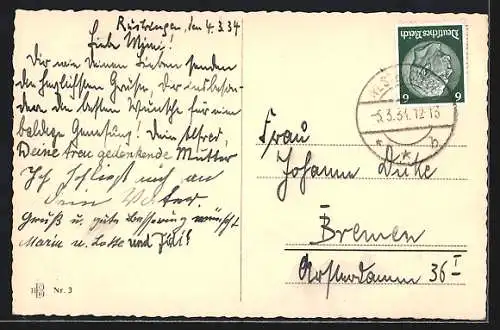 Rüstringen, den 4.3.34
Liebe Mimi!
Dir wie deinen Lieben senden
die herzlichsten Grüße, Dir insbeson-
dere die besten Wünsche für eine
baldige Genesung! Dein Alfred,
Deine treu gedenkende Mutter
Ich schließe mich an
Dein Vater.
Gruß u. gute Besserung wünscht
Maria u. Lotte und
Nr. 3
Deutsches Reich
6 6
-5.3.34.12-13
* b
Frau
Johanne
Bremen
36 I